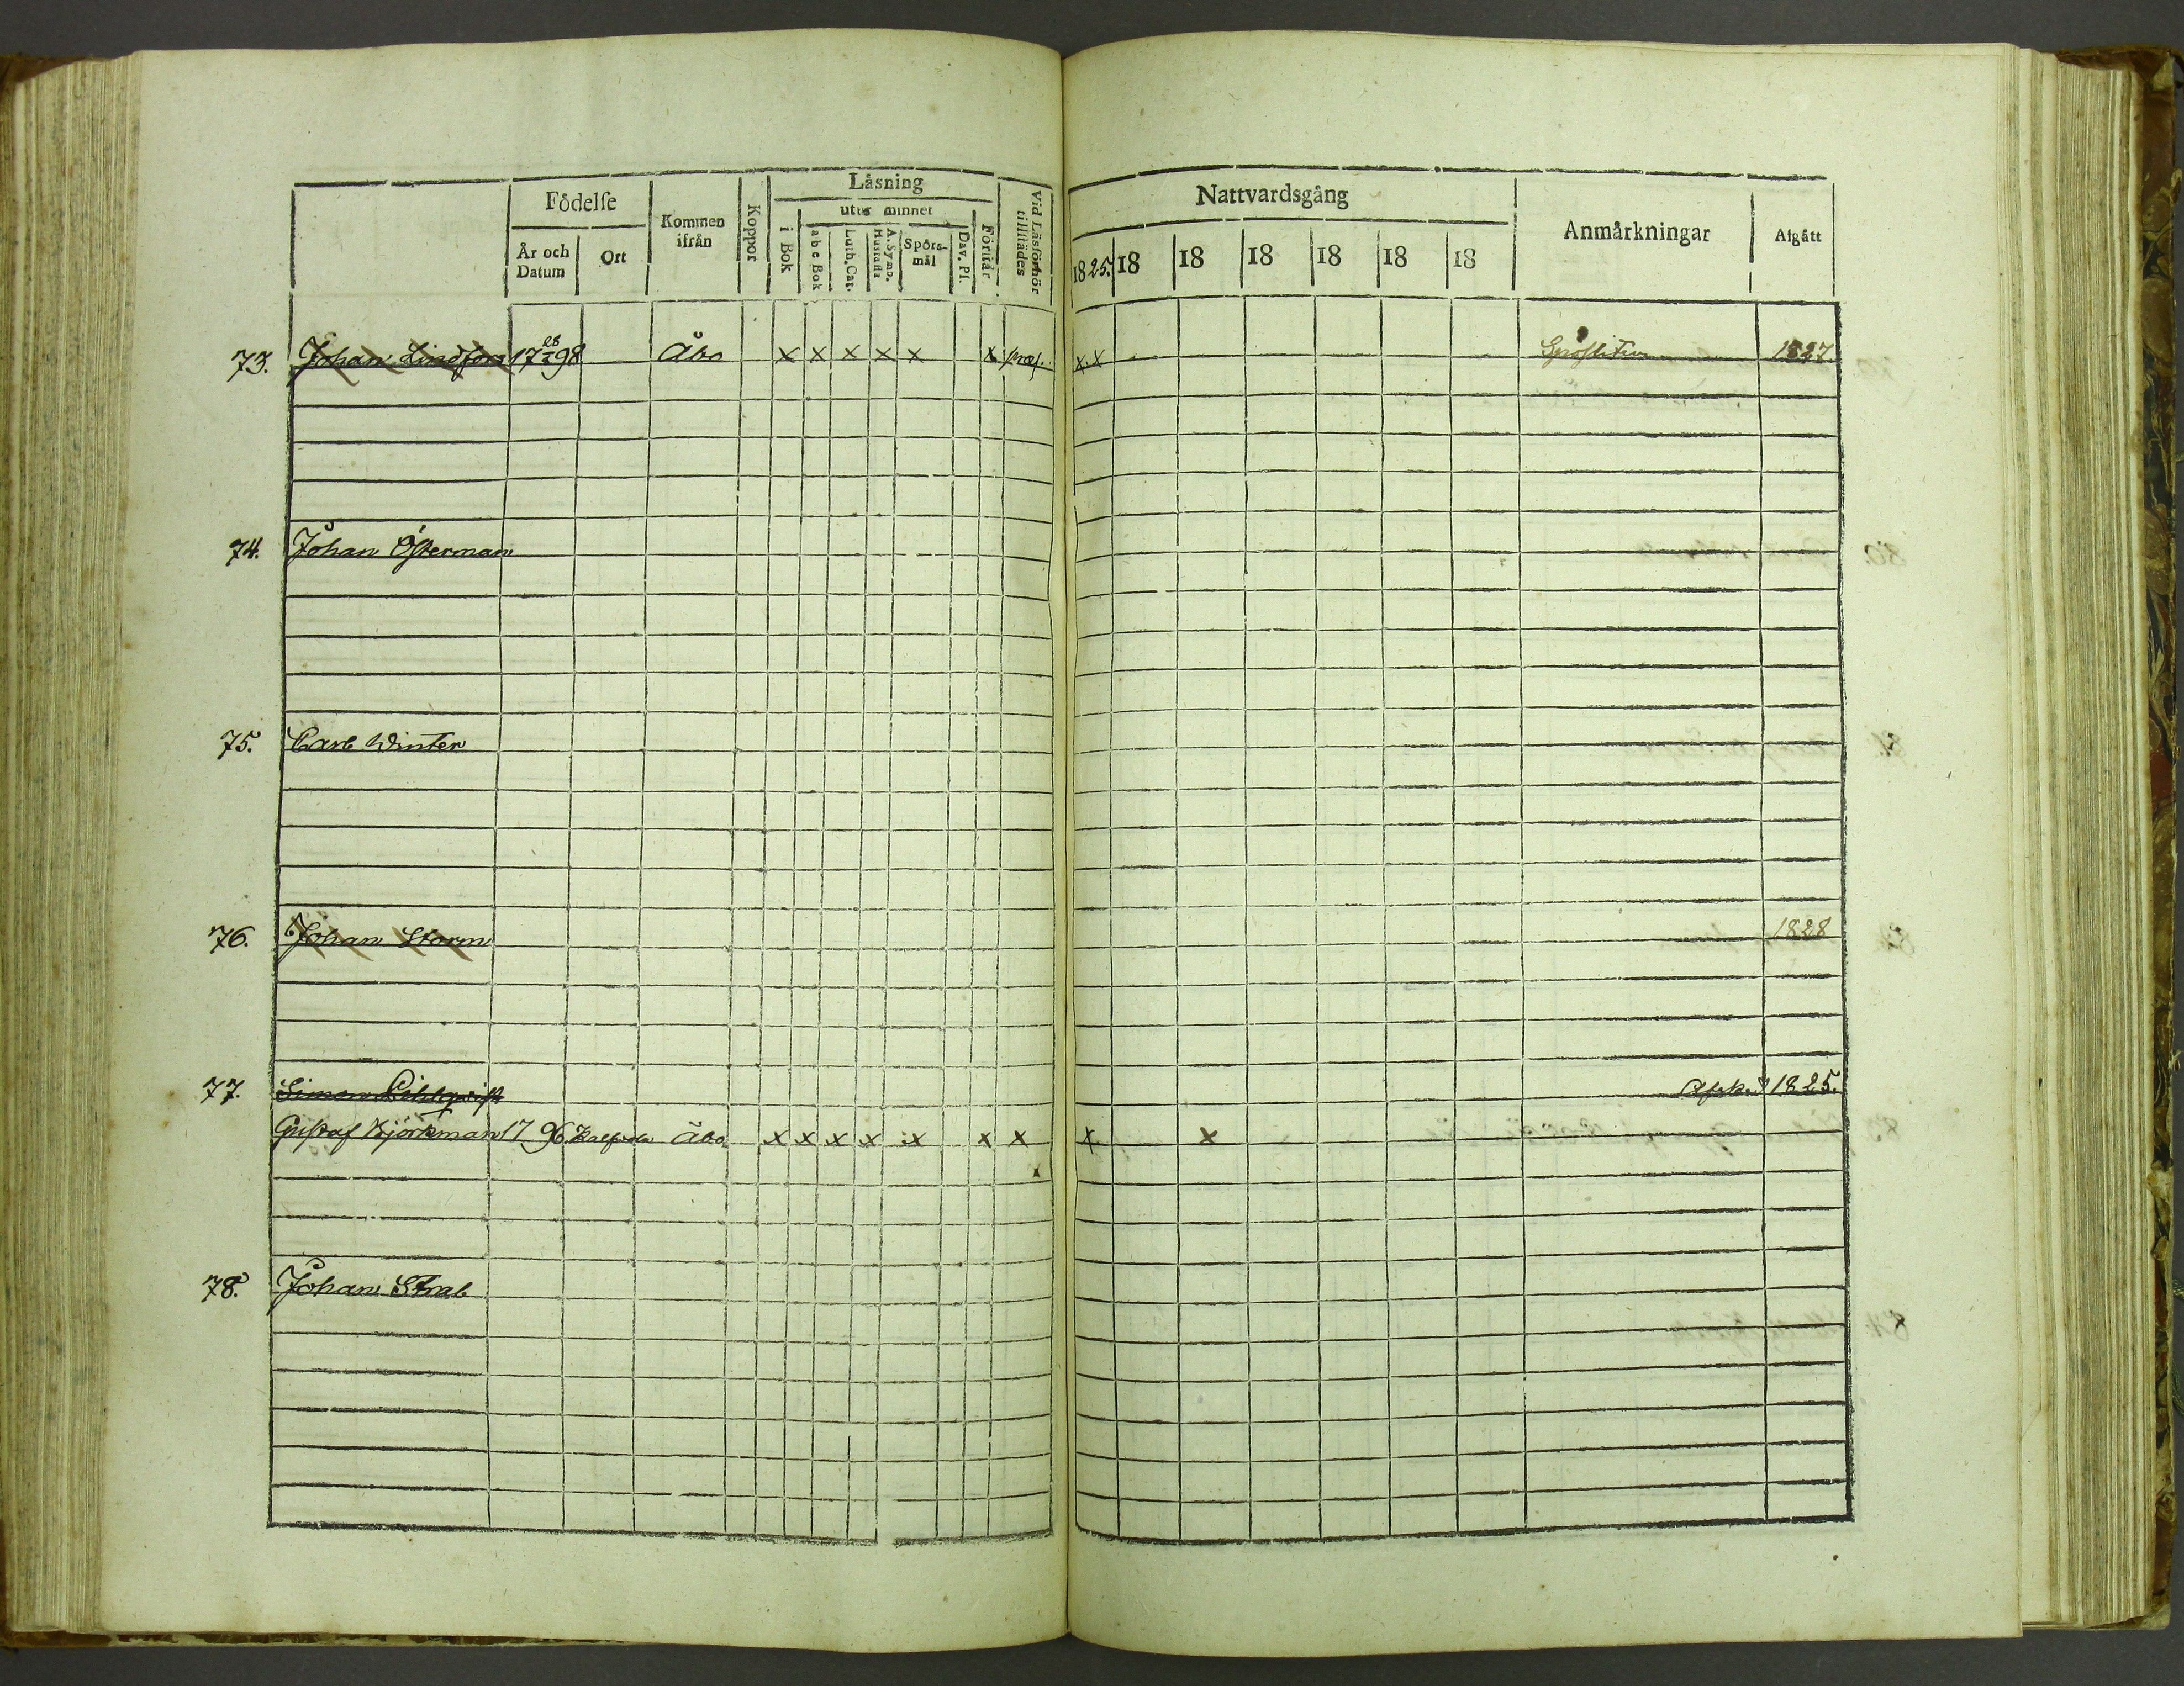 Födelse
År och Datum
Ort
Kommen ifrån
Koppor
Läsning
i Bok
utur minnet
a b c Bok
Luth. Cat.
A. Symb. Hustafla
Spörsmål
Dav. Ps.
Förstår
Vid Läsförhör tillstädes
Nattvardsgång
1825. 18 18 18 18 18 18
Anmärkningar
Afgått
73. Johan Lindfors 17 28 98 Åbo x x x x x x præs. x. x 1827.
74. Johan Österman
75. Carl Winter
76. Johan Storm 1828
77. Simon Afsked 1825.
Gustaf Björkman 17 96 Åbo x x x x x x x x x
78. Johan Stral